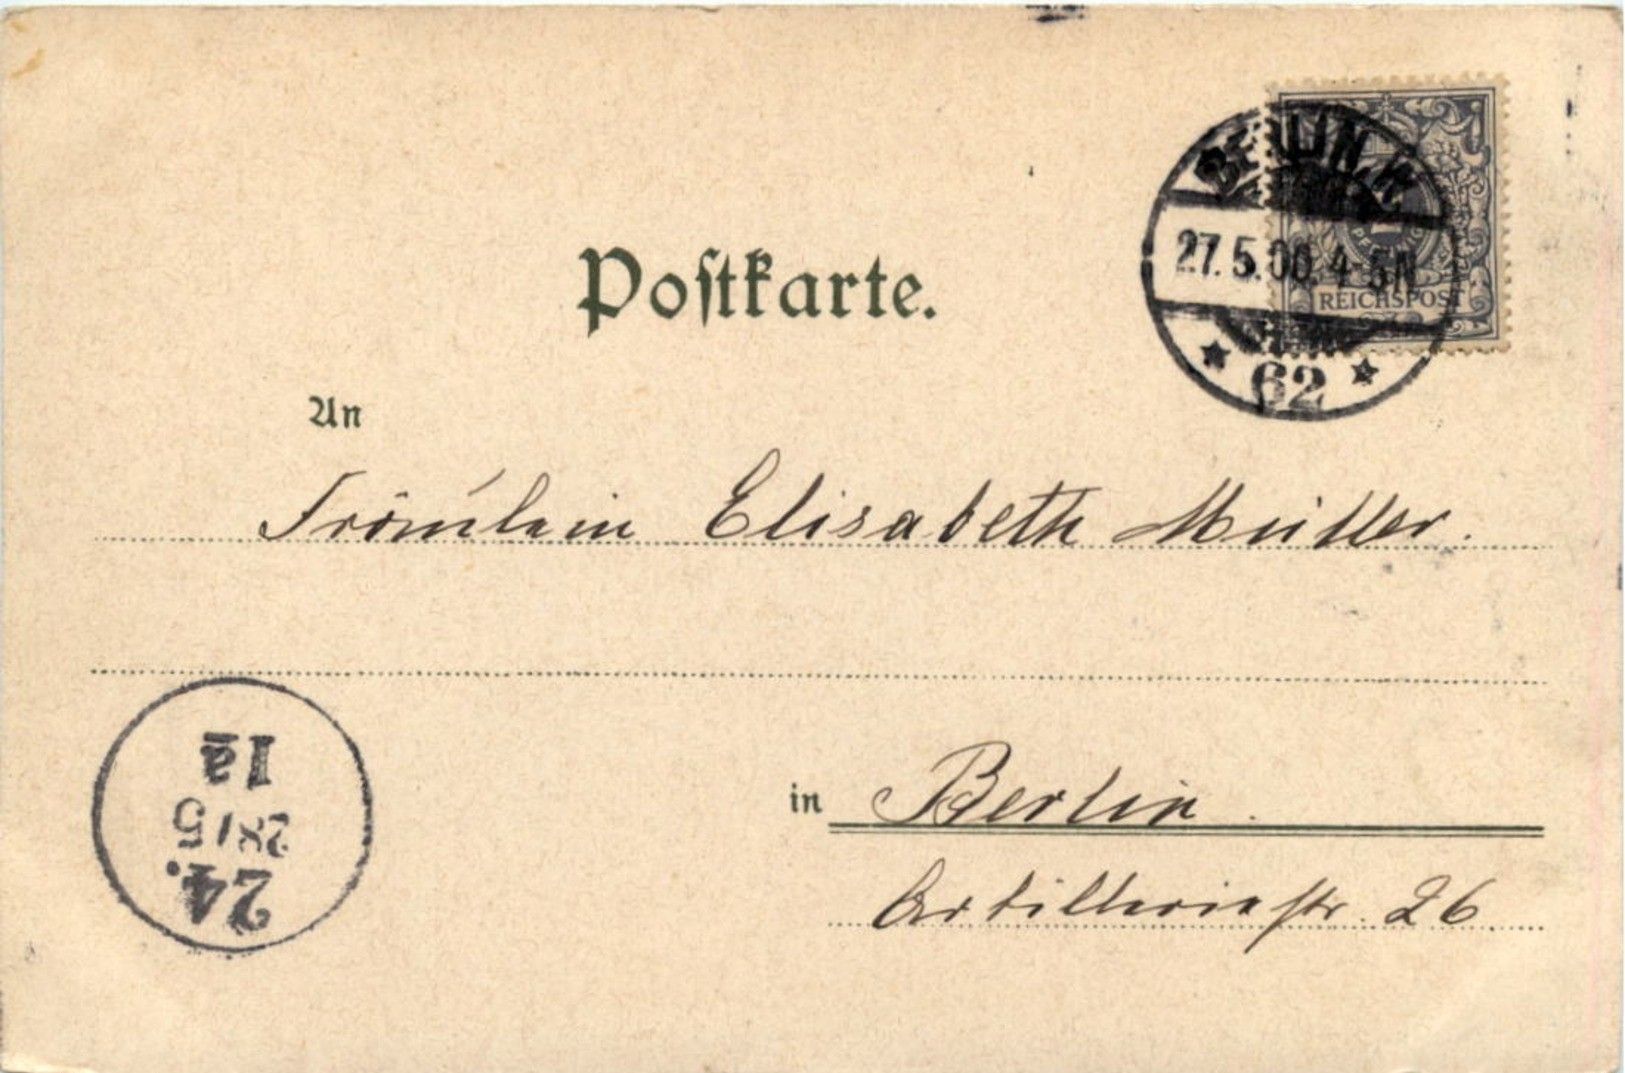 Postkarte.
BERLIN.W.
27.5.00.4-5N
62
PFENNIG
REICHSPOST
An
Fräulein Elisabeth Müller.
in Berlin.
Artilleriestr. 26
24.
28/5
1a